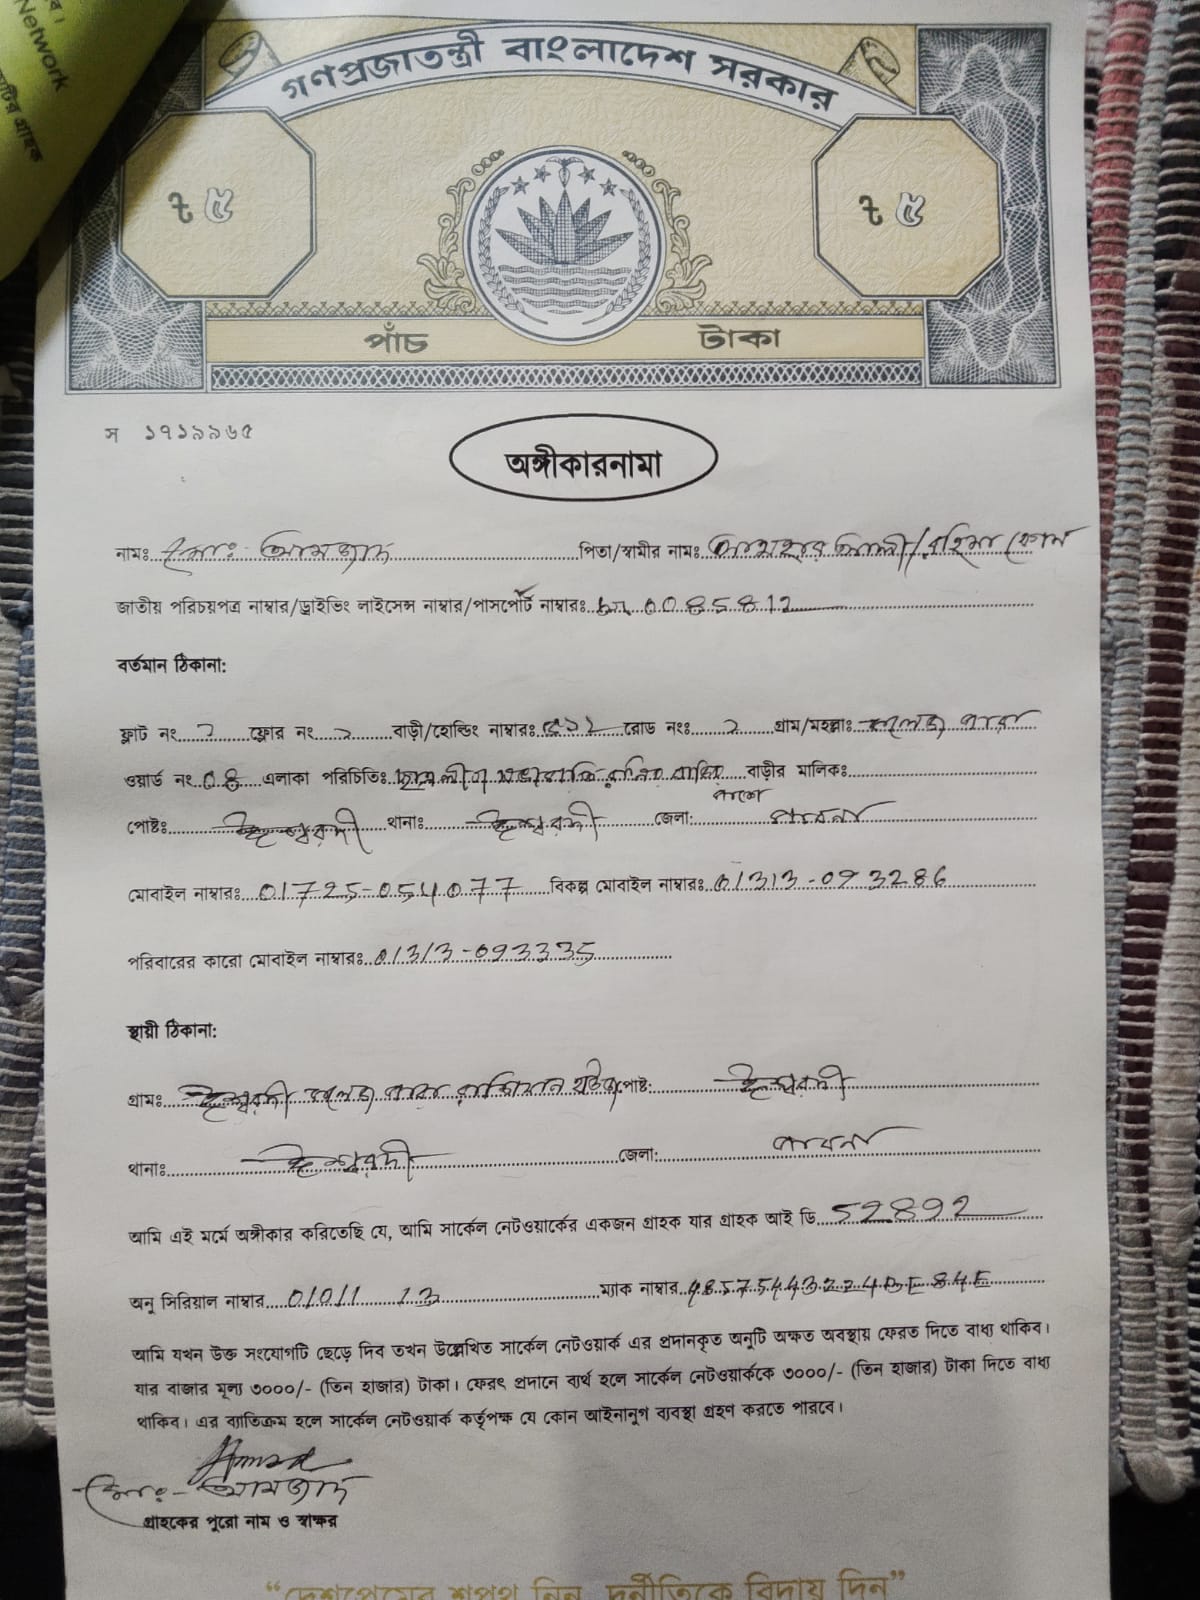 Network
গণপ্রজাতন্ত্রী বাংলাদেশ সরকার
৳ ৫ ৳ ৫
পাঁচ টাকা
স ১৭১৯৯৬৫
অঙ্গীকারনামা
নামঃ মোঃ আমজাদ পিতা/স্বামীর নামঃ
জাতীয় পরিচয়পত্র নাম্বার/ড্রাইভিং লাইসেন্স নাম্বার/পাসপোর্ট নাম্বারঃ 0085812
বর্তমান ঠিকানা:
ফ্লাট নং ফ্লোর নং বাড়ী/হোল্ডিং নাম্বারঃ রোড নংঃ গ্রাম/মহল্লাঃ কলেজ পাড়া
ওয়ার্ড নং 08 এলাকা পরিচিতিঃ বাড়ীর মালিকঃ
পাশে
পোষ্টঃ ঈশ্বরদী থানাঃ ঈশ্বরদী জেলা: পাবনা
মোবাইল নাম্বারঃ 01725-054077 বিকল্প মোবাইল নাম্বারঃ 01313-093286
পরিবারের কারো মোবাইল নাম্বারঃ 01313-093335
স্থায়ী ঠিকানা:
গ্রামঃ ঈশ্বরদী কলেজ পাড়া পোষ্ট: ঈশ্বরদী
থানাঃ ঈশ্বরদী জেলা: পাবনা
আমি এই মর্মে অঙ্গীকার করিতেছি যে, আমি সার্কেল নেটওয়ার্কের একজন গ্রাহক যার গ্রাহক আই ডি 52892
অনু সিরিয়াল নাম্বার 01011 13 ম্যাক নাম্বার 485754432
আমি যখন উক্ত সংযোগটি ছেড়ে দিব তখন উল্লেখিত সার্কেল নেটওয়ার্ক এর প্রদানকৃত অনুটি অক্ষত অবস্থায় ফেরত দিতে বাধ্য থাকিব।
যার বাজার মূল্য ৩০০০/- (তিন হাজার) টাকা। ফেরৎ প্রদানে ব্যর্থ হলে সার্কেল নেটওয়ার্ককে ৩০০০/- (তিন হাজার) টাকা দিতে বাধ্য
থাকিব। এর ব্যাতিক্রম হলে সার্কেল নেটওয়ার্ক কর্তৃপক্ষ যে কোন আইনানুগ ব্যবস্থা গ্রহণ করতে পারবে।
মোঃ- আমজাদ
গ্রাহকের পুরো নাম ও স্বাক্ষর
“দেশপ্রেমের শপথ নিন, দুর্নীতিকে বিদায় দিন”